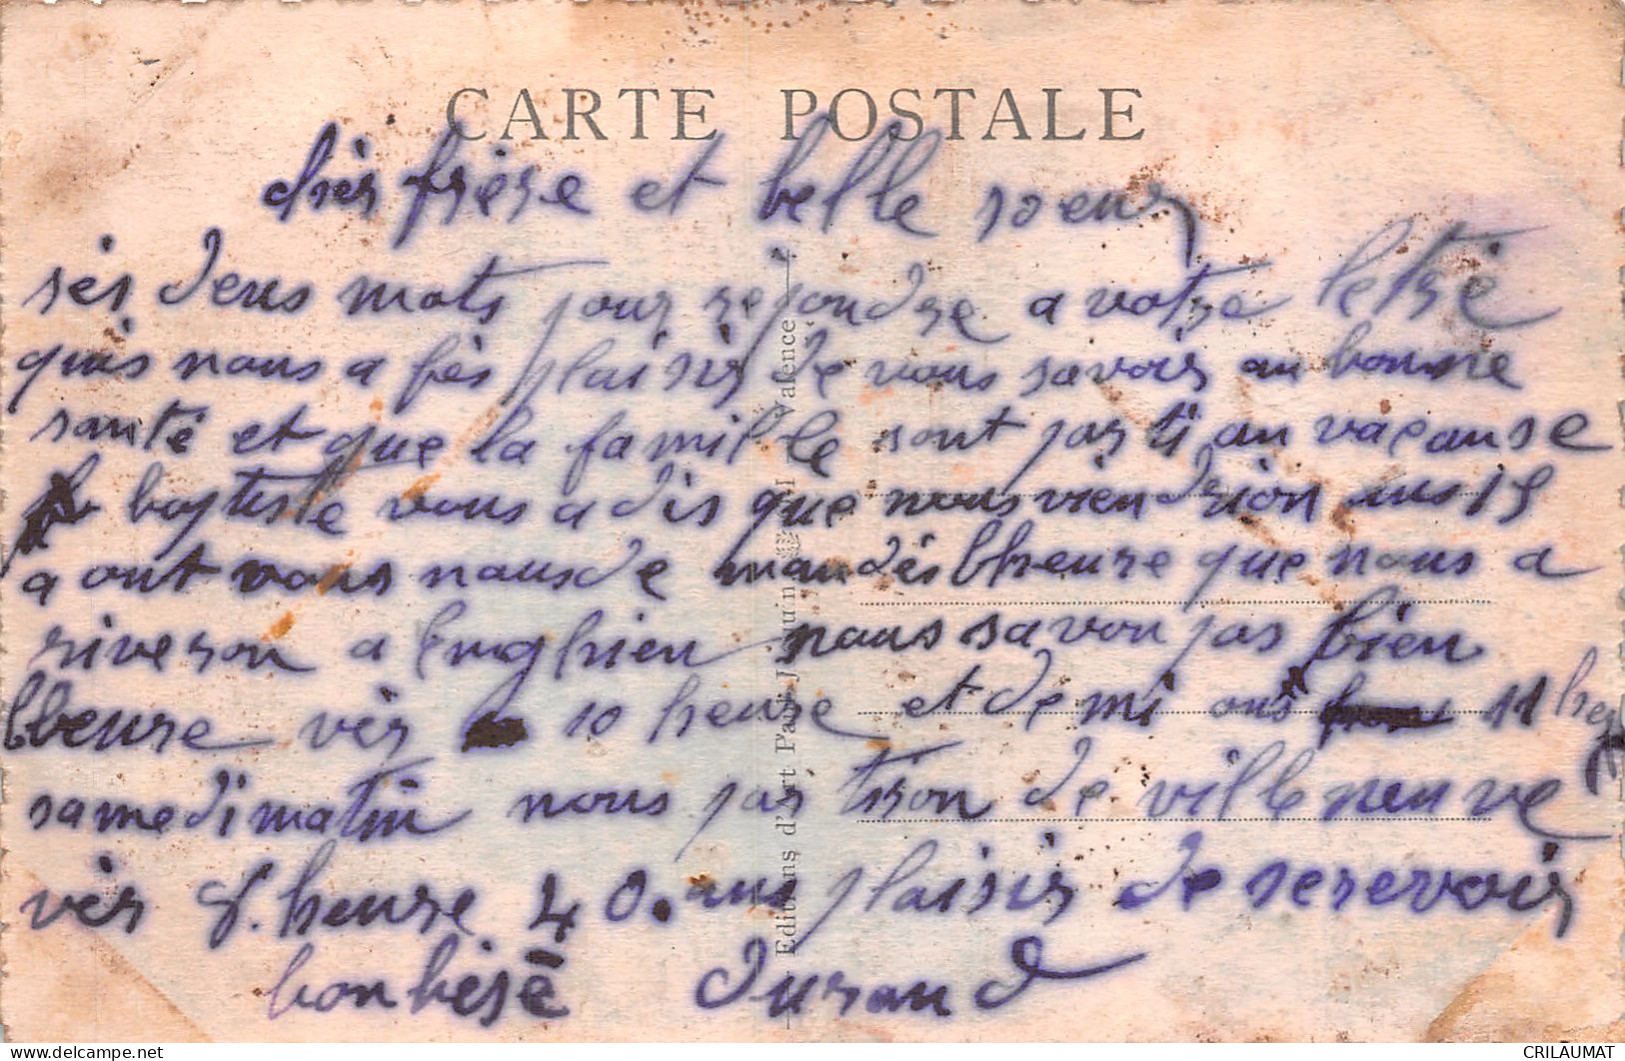 CARTE POSTALE
chèr frère et belle soeur
sès deus mots pour rejondre a votre letrè
quis nous a fès plaisir de vous savoir au bonne
santé et que la famille sont parti an vacanse
baptiste vous a dis que nous viendrion
a out vous nous de mandés lheure que nous a
riveron a Enghien nous savon pas bien
lheure vèr 10 heure et demi ous 11 heure
samedi matin nous partiron de villeneuve
vèr 8. heure 40. aus plaisir de se revoir
bon bésé Durand
Editions d'Art Paul Jacquin Valence
CRILAUMAT